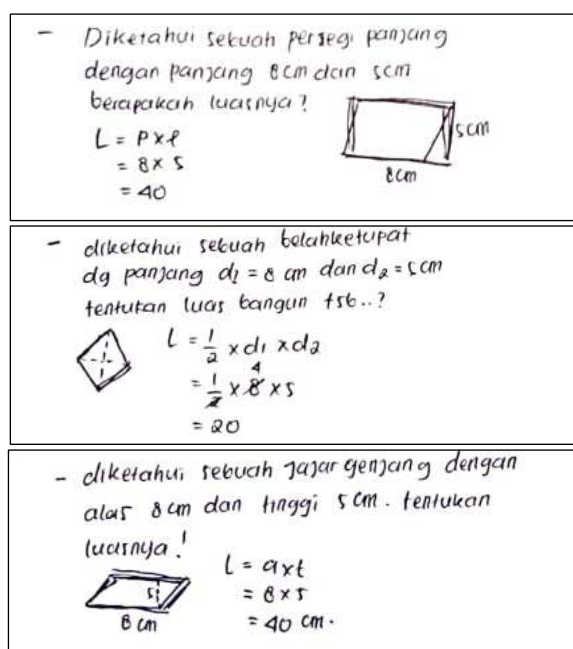 - Diketahui sebuah persegi panjang
dengan panjang 8cm dan 5cm
berapakah luasnya?
L = P x l
= 8 x 5
= 40
5cm
8cm
- diketahui sebuah belahketupat
dg panjang d1 = 8 cm dan d2 = 5cm
tentukan luas bangun tsb..?
L = 1/2 x d1 x d2
4
= 1/2 x 8 x 5
= 20
- diketahui sebuah jajargenjang dengan
alas 8cm dan tinggi 5cm. tentukan
luasnya!
L = a x t
= 8 x 5
= 40 cm.
5
8 cm